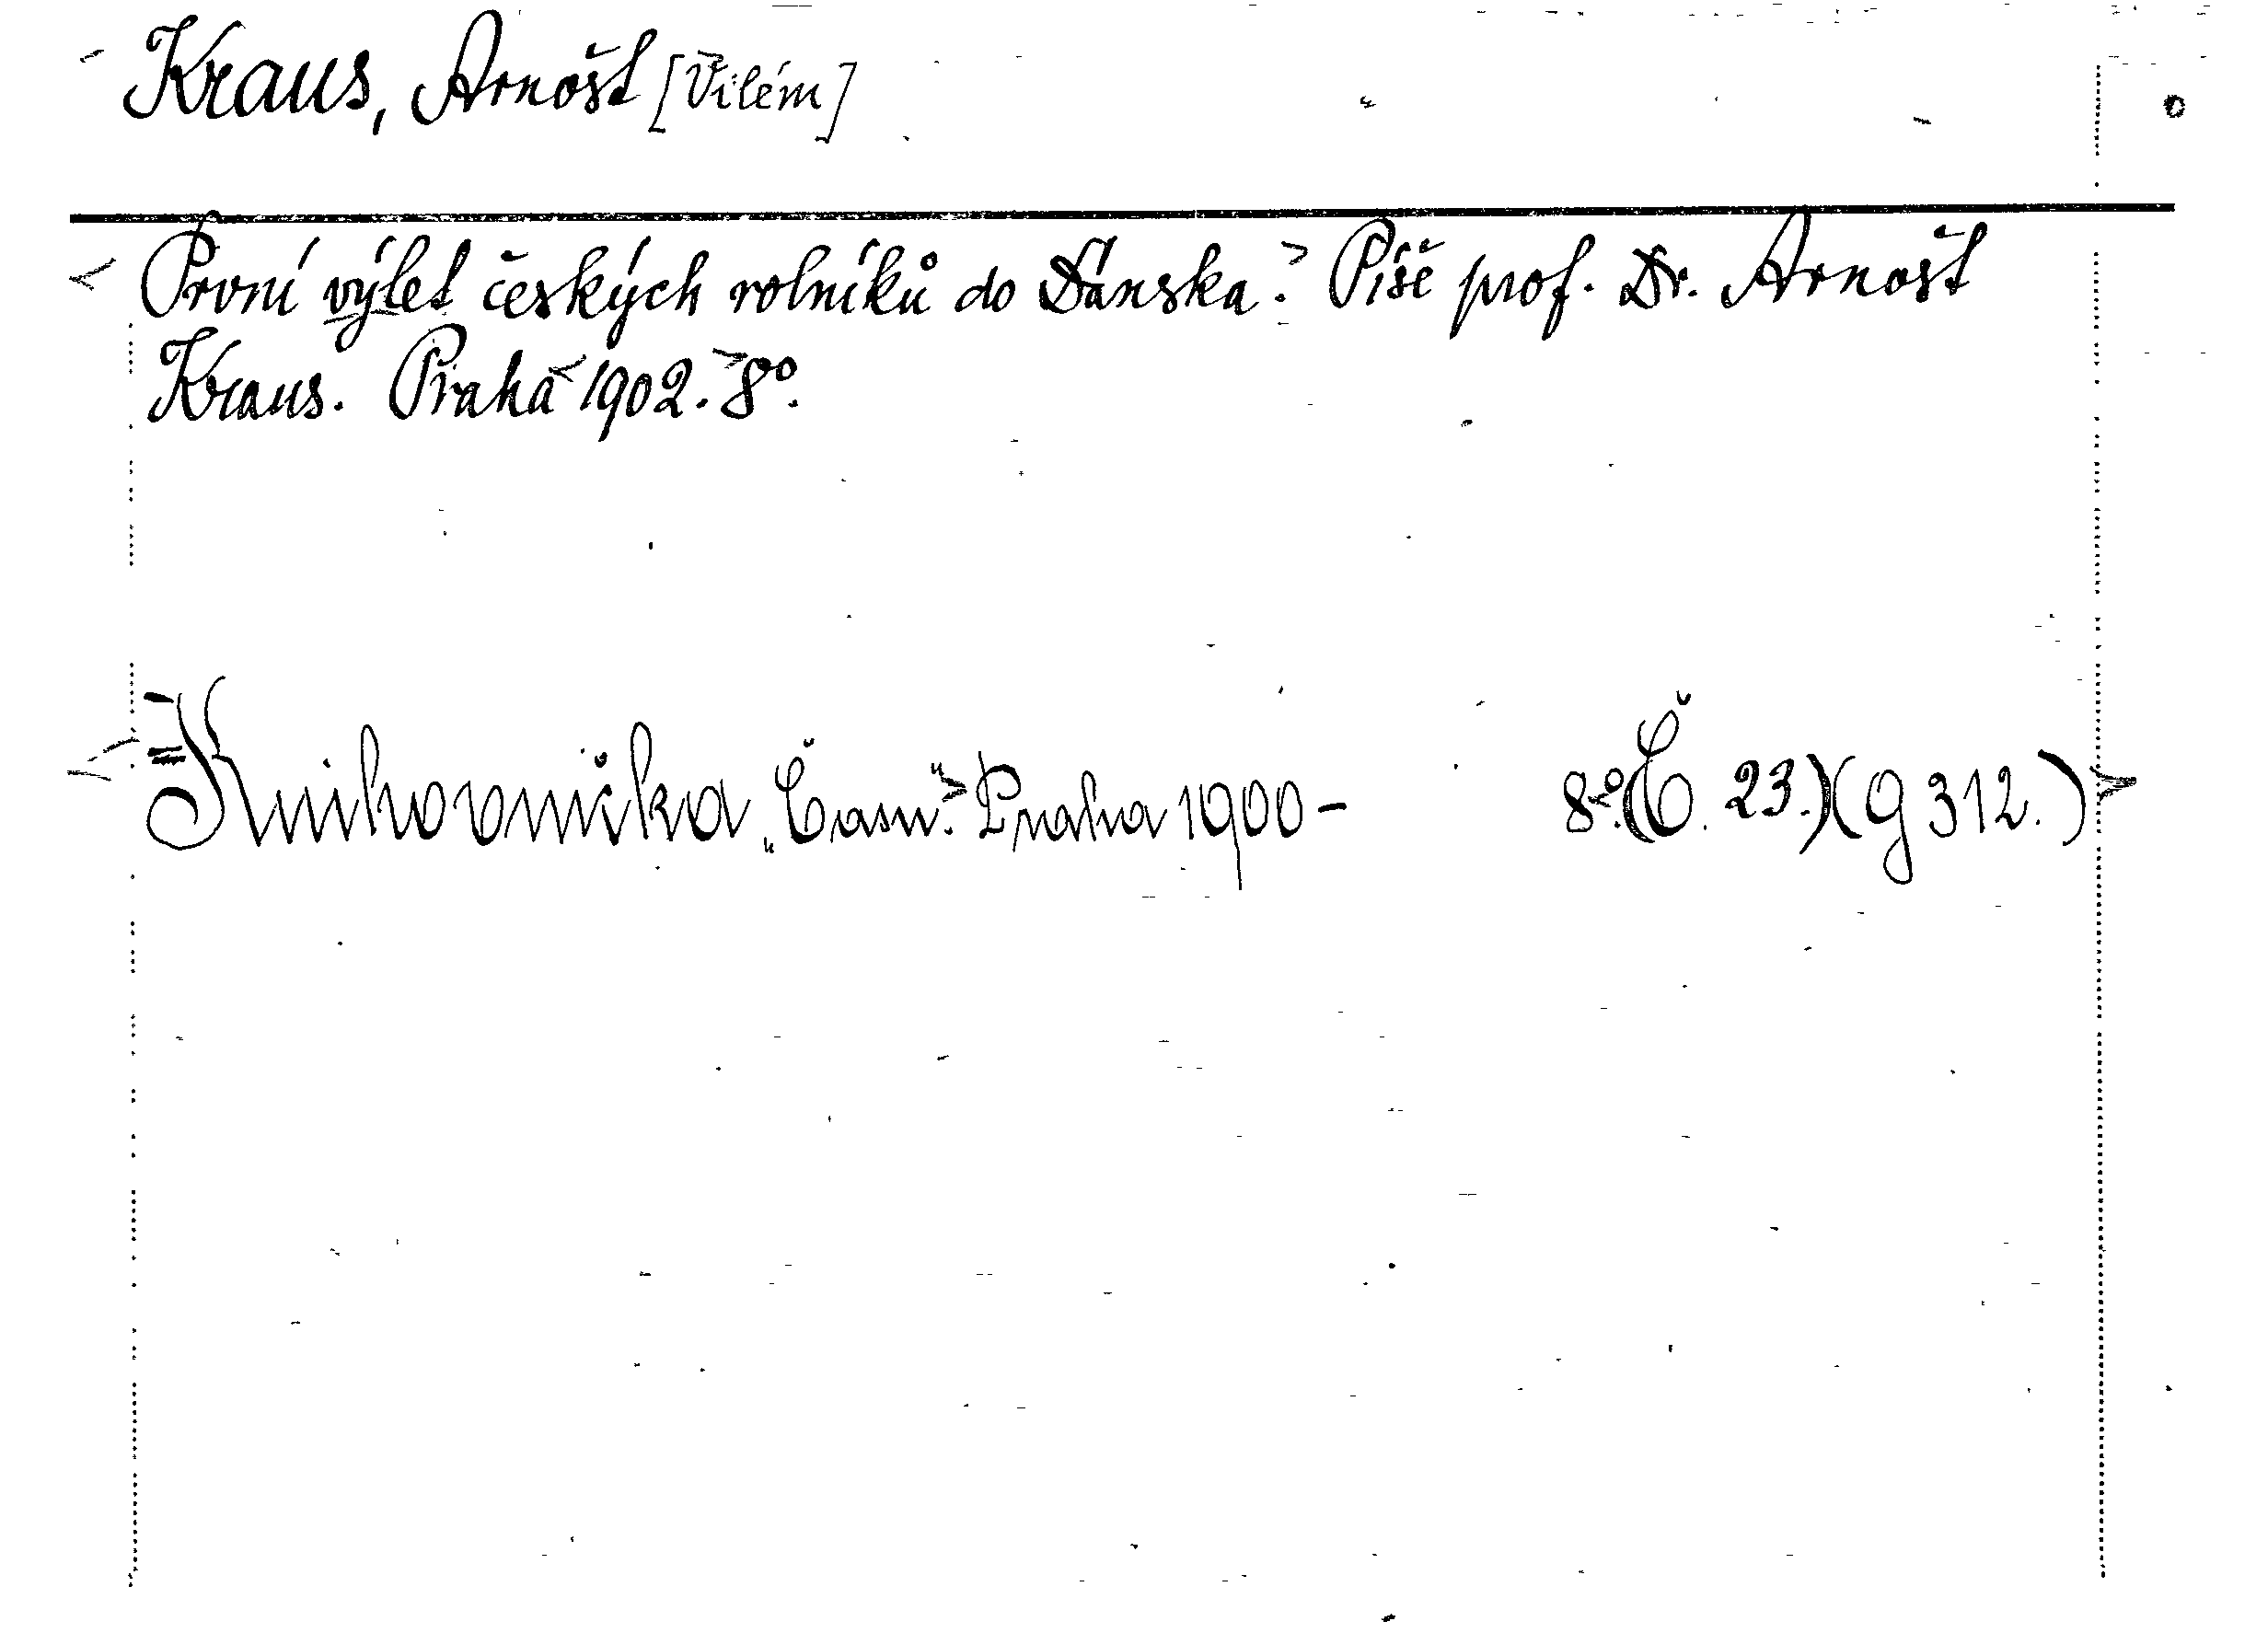 Kraus, Arnošt [Vilém]
První výlet českých rolníků do Dánska. Píše prof. Dr. Arnošt
Kraus. Praha 1902. 8°.
Knihovnička „Času“. Praha 1900– 8°. (Č. 23.) (g 312.)